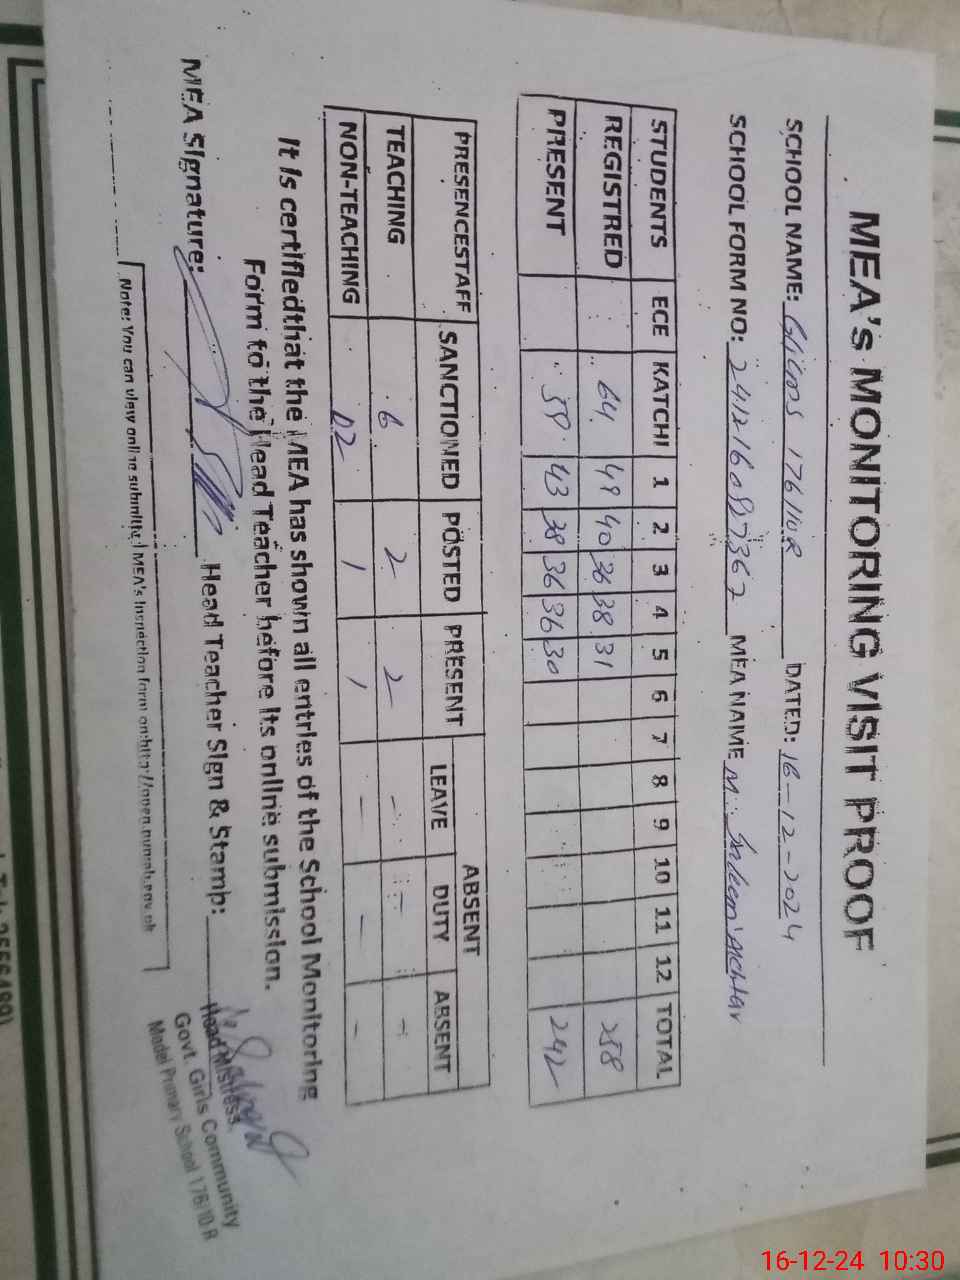 MEA's MONITORING VISIT PROOF
SCHOOL NAME: 176/10R DATED: 16-12-2024
SCHOOL FORM NO: 2412160887362 MEA NAME M. Nadeem Akhtar
STUDENTS ECE KATCHI 1 2 3 4 5 6 7 8 9 10 11 12 TOTAL
REGISTRED 64 49 40 36 38 31 258
PRESENT 59 43 38 36 36 30 242
PRESENCESTAFF SANCTIONED POSTED PRESENT ABSENT
LEAVE DUTY ABSENT
TEACHING 6 2 2 - - -
NON-TEACHING 02 1 1 - - -
It is certifiedthat the MEA has shown all entries of the School Monitoring
Form to the Head Teacher before its online submission.
MEA Signature: Head Teacher Sign & Stamp:
Head Mistress,
Govt. Girls Community
Model Primary School 176/10 R
Note: You can view online submitted MEA's Inspection form on:http://open.punjab.gov.pk
16-12-24 10:30